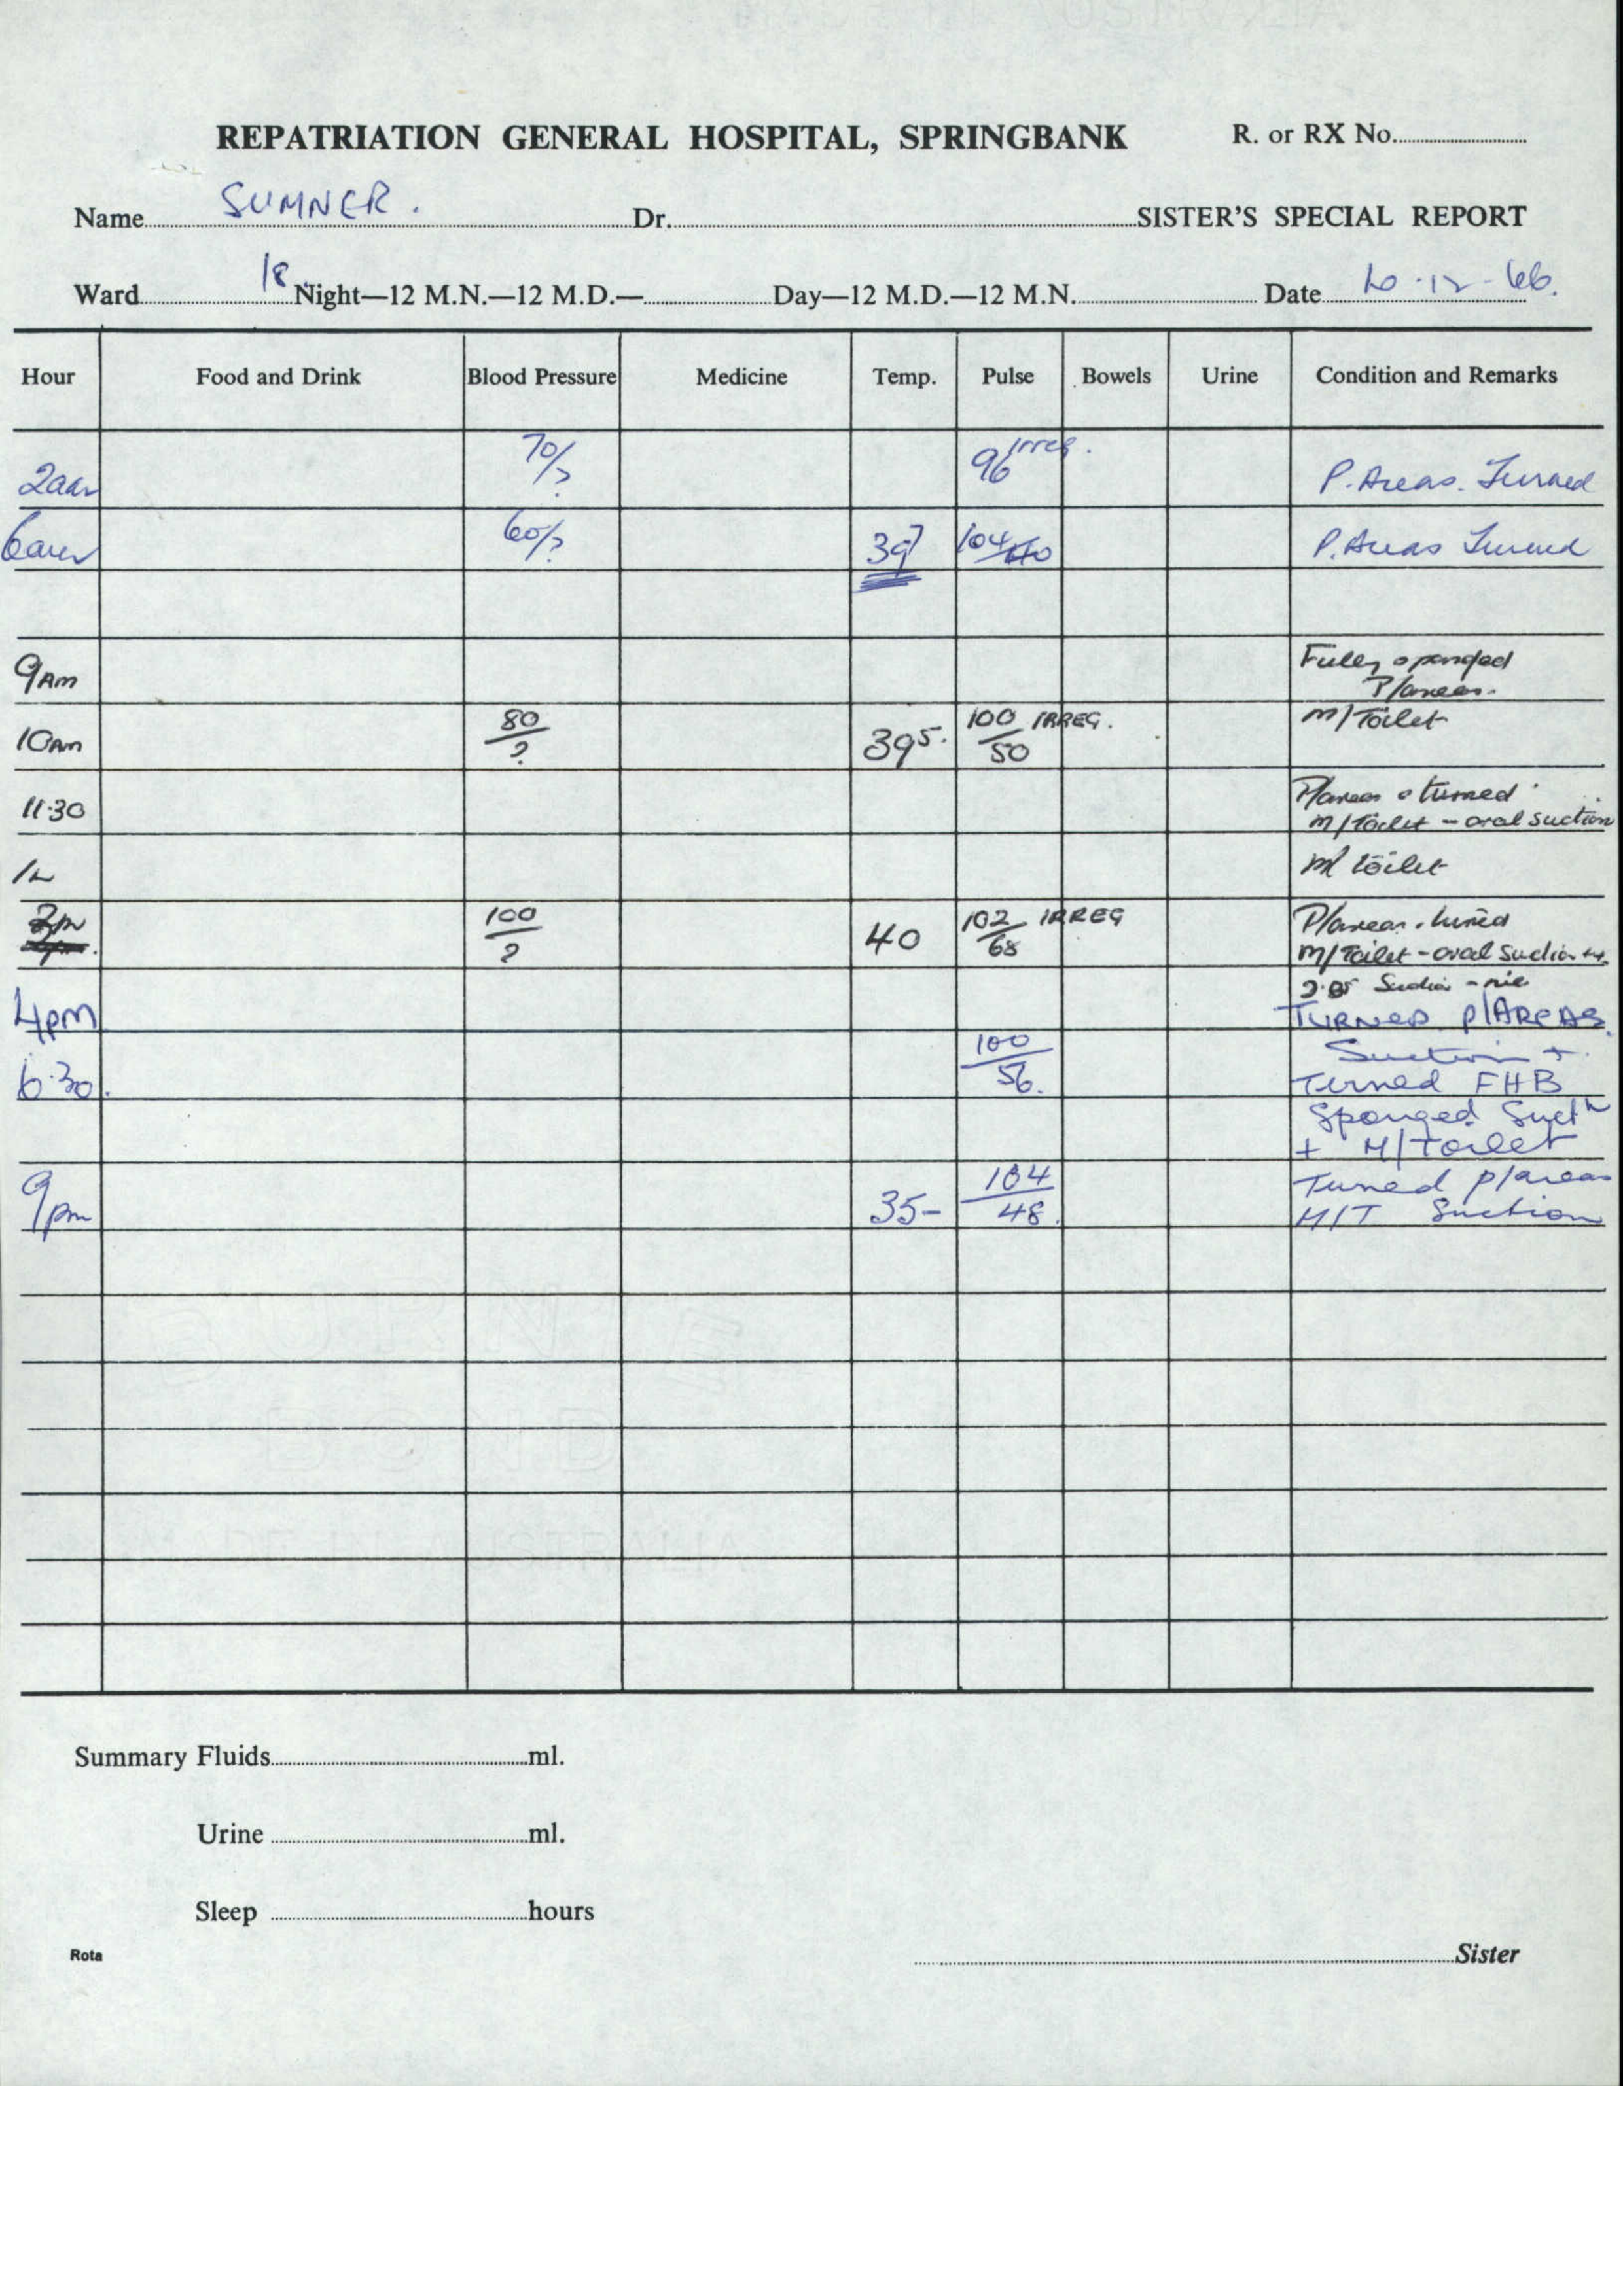 REPATRIATION GENERAL HOSPITAL, SPRINGBANK R. or RX No.
Name SUMNER. Dr. SISTER'S SPECIAL REPORT
Ward 18 Night—12 M.N.—12 M.D.— Day—12 M.D.—12 M.N. Date -12-66.
Hour Food and Drink Blood Pressure Medicine Temp. Pulse Bowels Urine Condition and Remarks
2am 70/? 96 irreg. P. Areas. Turned
6am 60/? 39⁷ 104/40 P. Areas Turned
9AM Fully sponged
P/areas.
10AM 80/? 39⁵. 100/50 IRREG. M/Toilet
11.30 P/areas & turned
M/Toilet - oral suction
M/ toilet
2pm 100/? 40 102/68 IRREG P/areas. turned
M/Toilet - oral suction
Suction - nil
4pm TURNED P/AREAS
Suction +.
6.30. 100/56. Turned FHB
Sponged Suctⁿ
+ M/Toilet
9pm 35- 104/48. Turned p/areas
M/T Suction
BURNIE
BOND
MADE IN AUSTRALIA
Summary Fluids ml.
Urine ml.
Sleep hours
Rota Sister